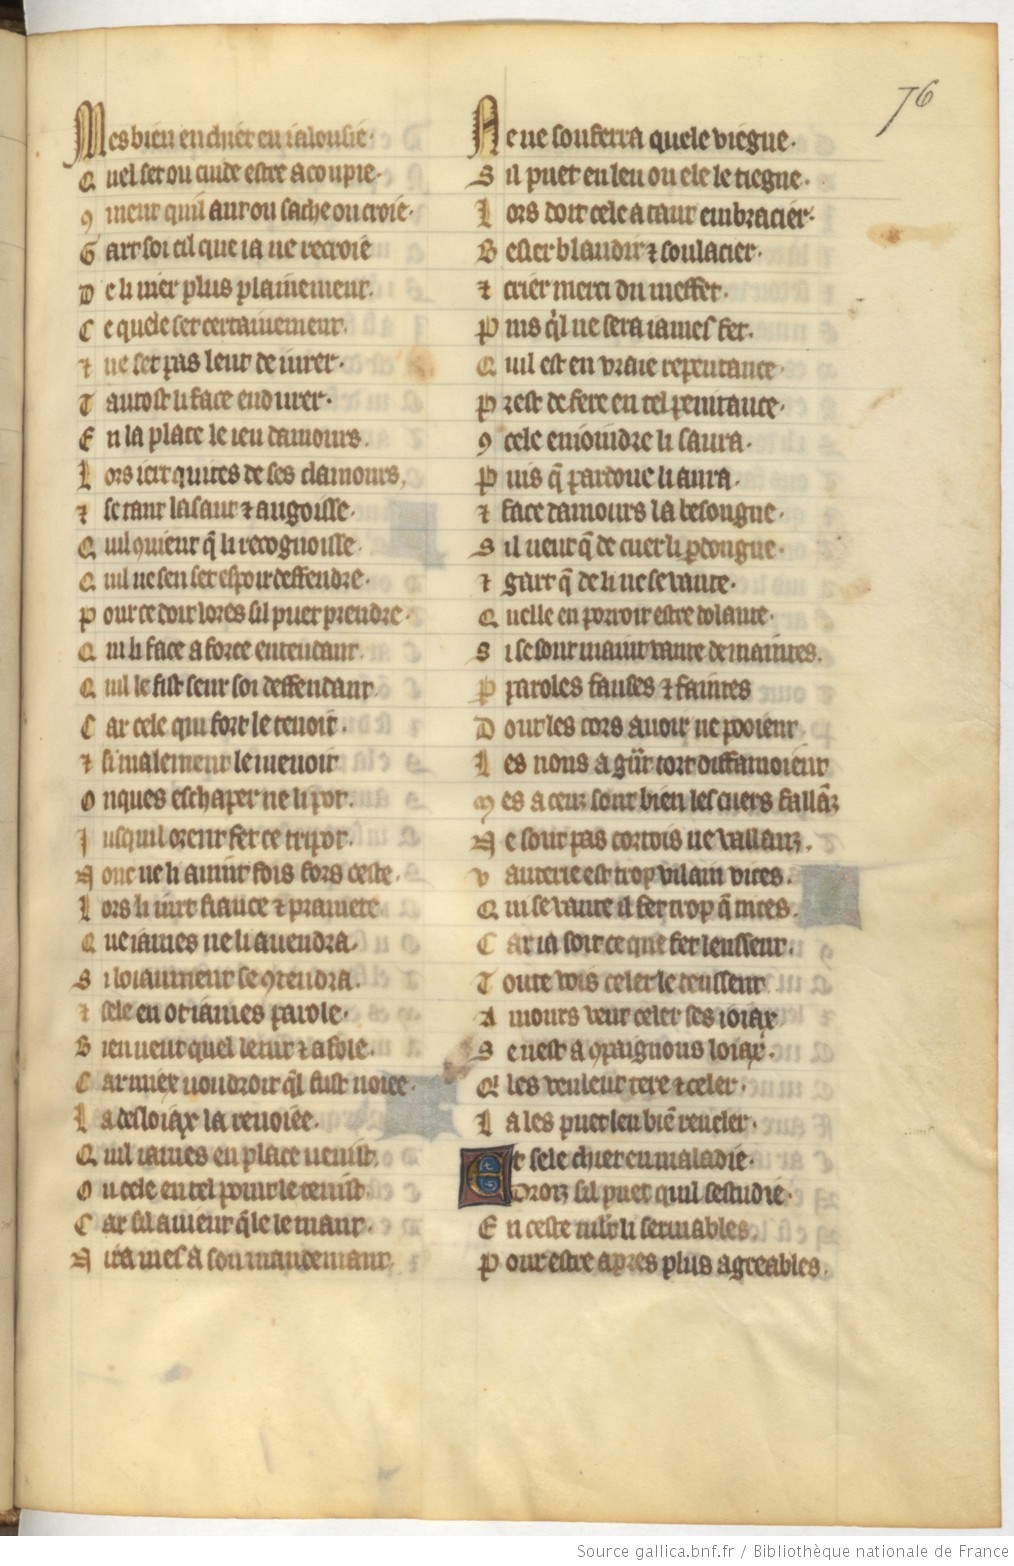 76
Mes bien enchiet en ialousie.
Quel set ou cuide estre acoupie.
9ment quil aut ou sache ou croie.
Gart soi cil que ia ne recroie
De li nier plus plainement.
Ce quele set certainement.
⁊ ne set pas lent de iurer.
Tantost li face endurer.
En la place le ieu damours.
Lors iert quites de ses clamours.
⁊ se tant lasaut ⁊ angoisse.
Quil 9uient q̃ li recognoisse.
Quil ne sen set espoir deffendre.
Pour ce doit lores sil puet prendre.
Qui li face a force entendant.
Quil le fist seur soi deffendant.
Car cele qui fort le tenoit.
⁊ si malement le menoit
Onques eschaper ne li pot.
Iusquil orent fet ce tripot.
Nonc ne li auint fois fors ceste.
Lors li iurt fiance ⁊ promete
Que iames ne li auendra.
Si loiaument se 9tendra.
⁊ sele en ot iames parole.
Bien ueut quel le tut ⁊ afole.
Car miex uoudroit q̃l fust noiee.
La desloiax la renoiee.
Quil iames en place uenist.
Ou cele en tel point le tenist.
Car sil auient q̃le le mant.
Nira mes a son mandemant.
Ne ne souferra quele viegne.
Sil puet en leu ou ele le tiegne.
Lors doit cele a tant embracier.
Besier blandir ⁊ soulacier.
⁊ crier merci du meffet.
Puis q̃l ne sera iames fet.
Quil est en vraie repentance.
Prest de fere en tel penitance.
9 cele enioindre li saura.
Puis q̃ pardone li aura.
⁊ face damours la besongne.
Sil ueut q̃ de cuer li pdongne.
⁊ gart q̃ de li ne se vante.
Quelle en porroit estre dolante.
Si se sont maint vante de maintes.
P paroles fauses ⁊ faintes
Dont les cors auoir ne pooient
Les nons a g̃nt tort diffamoient
Mes a ceuz sont bien les cuers fallãz
Ne sont pas cortois ne vallanz.
Vanterie est trop vilain vices.
Qui se vante il fet trop q̃ nices.
Car ia soit ce que fet leussent.
Toute vois celer le deussent
Amours veut celer ses ioiax
Se nest a 9paignons loiax.
Q̃ les veulent tere ⁊ celer.
La les puet len biẽ reueler.
Et sele chiet en maladie.
Droiz sil puet quil sestudie.
En ceste mlt li seruables.
Pour estre apres plus agreables.
Source gallica.bnf.fr / Bibliothèque nationale de France